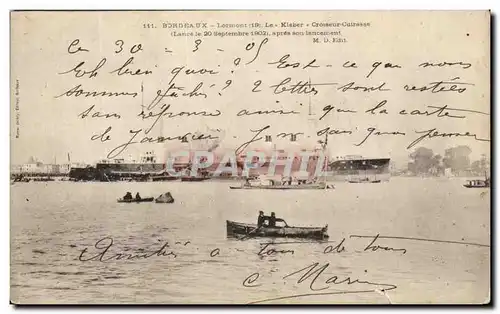 111. BORDEAUX - Lormont (19). Le « Kléber » Croiseur-Cuirassé
(Lancé le 20 Septembre 1902), après son lancement
M. D. Edit.
Ce 30 - 3 - 05
Eh bien quoi ? Est-ce que nous
sommes fâchés ? 2 lettres sont restées
sans réponse ainsi que la carte
de Janvier Je ne sais que penser
CARTHAPEC
Amitiés à tous de tous
C. Marin